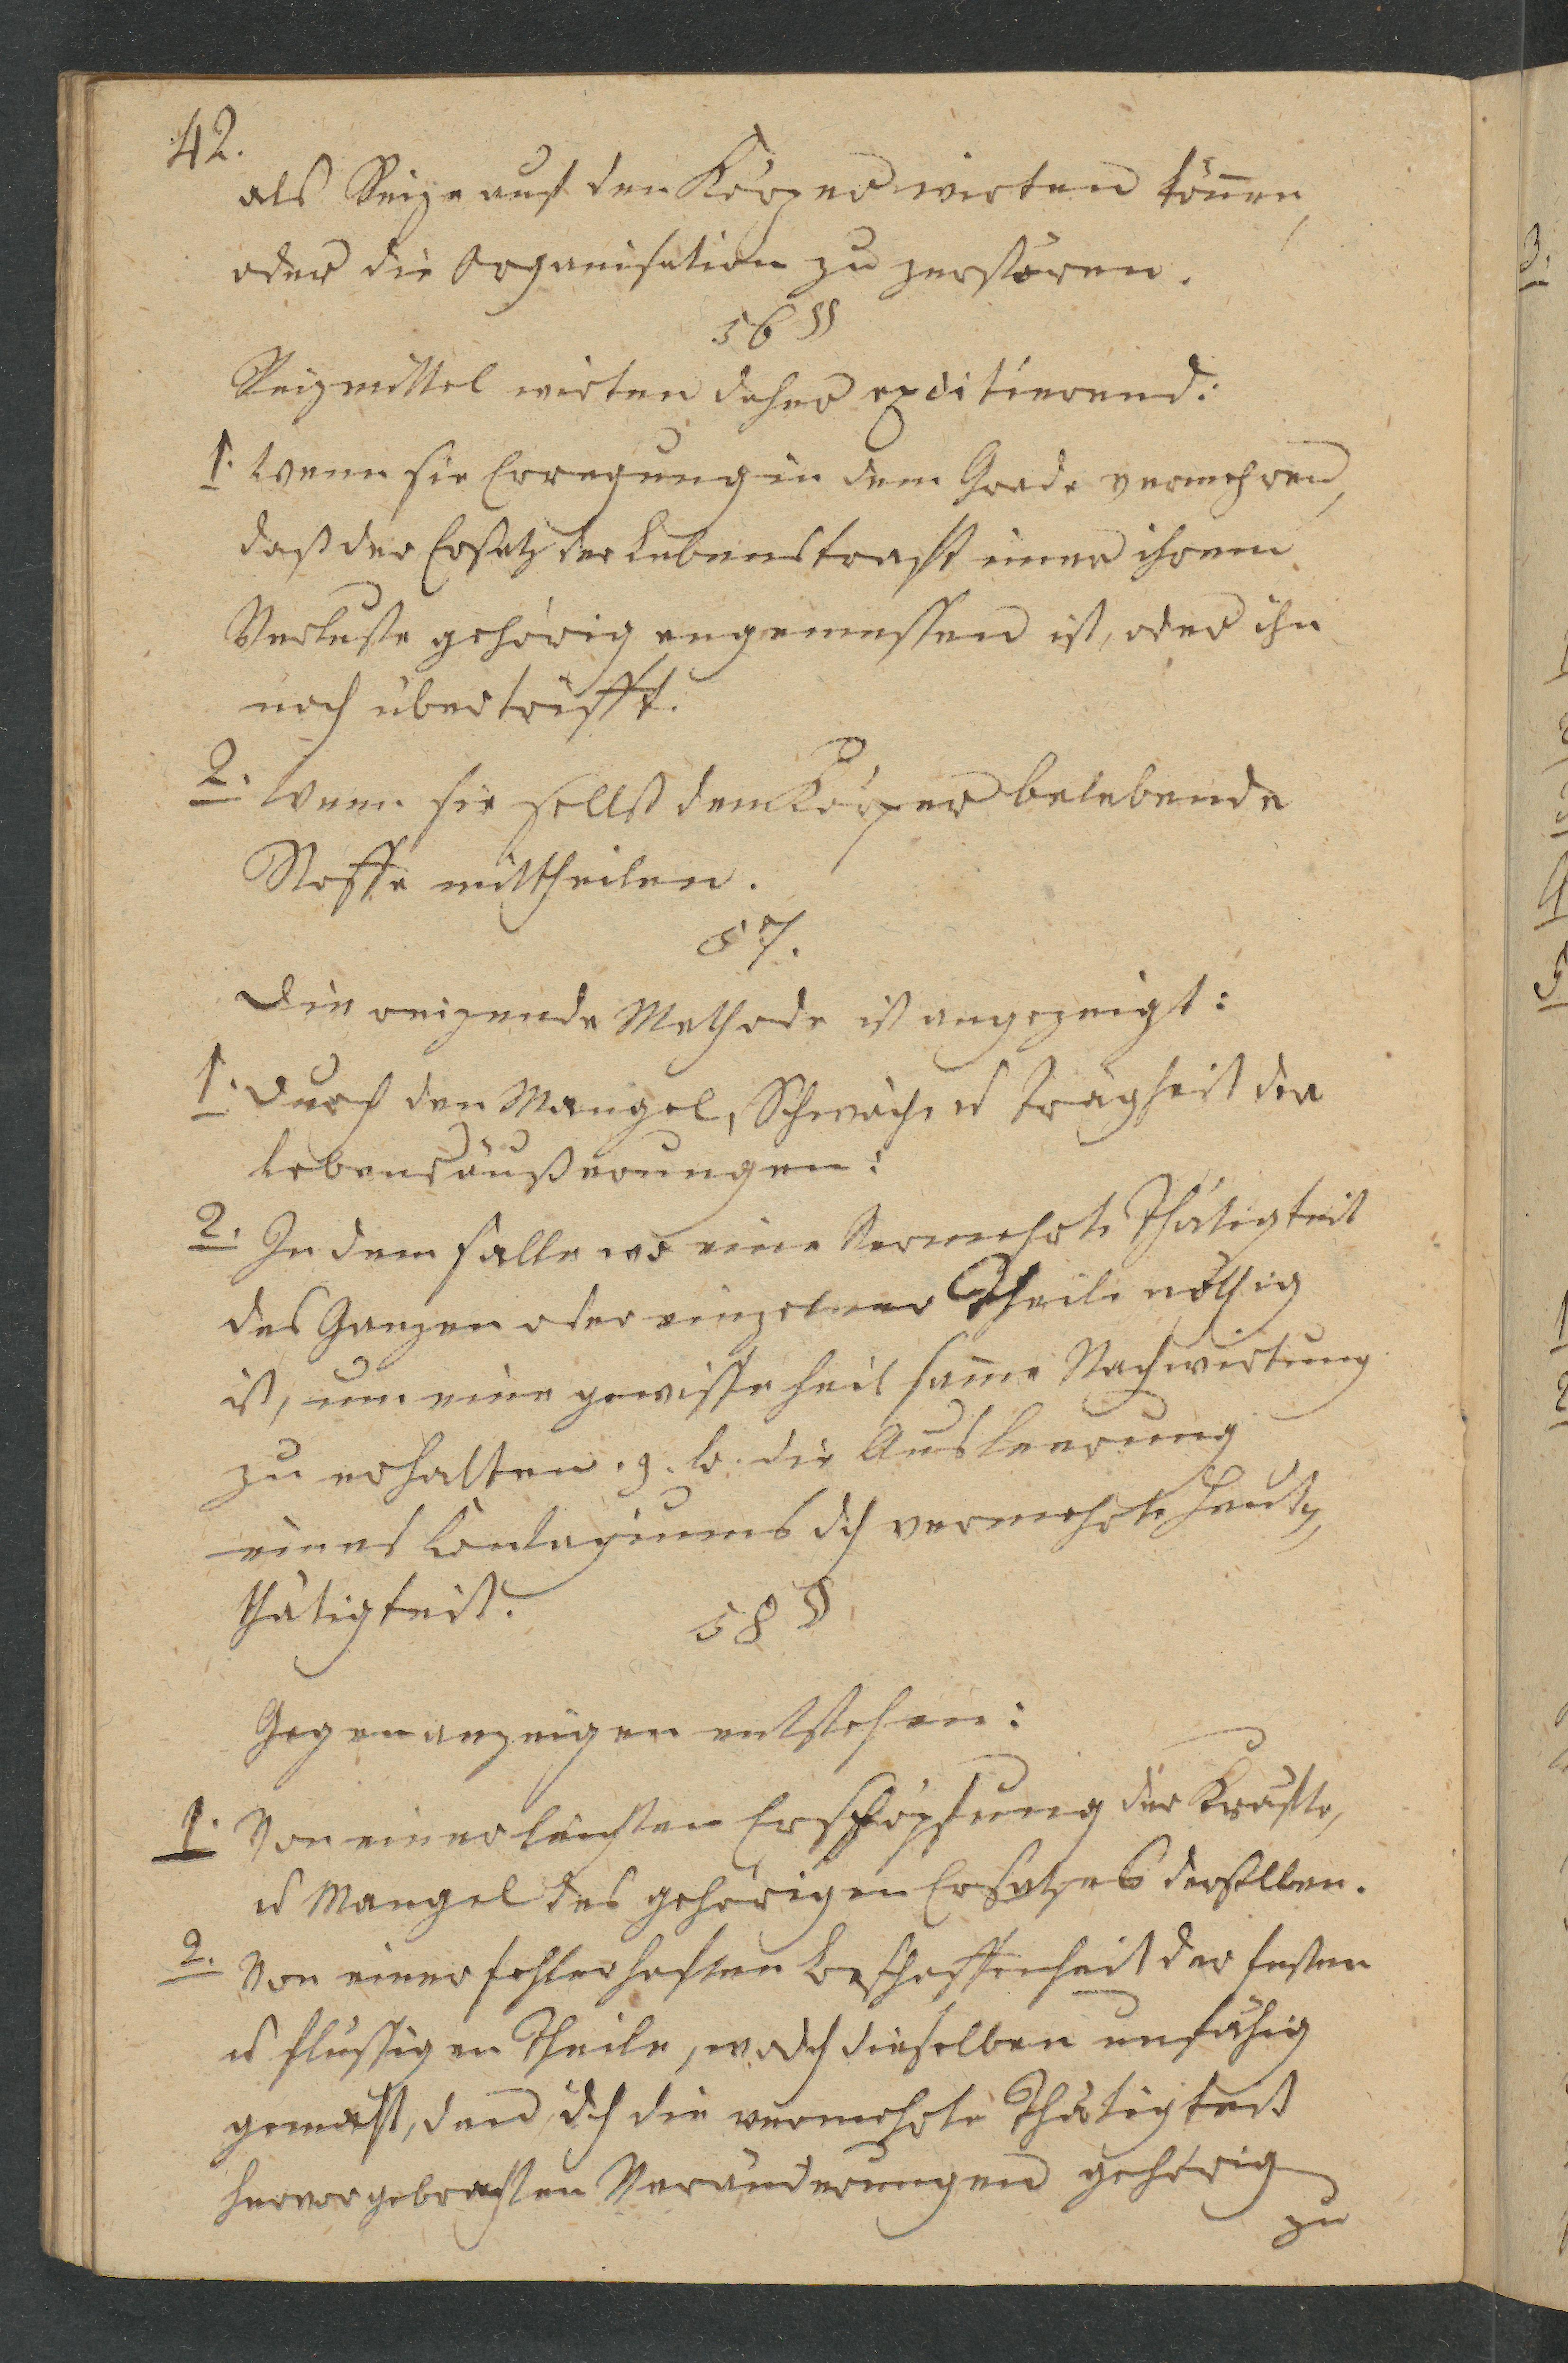 42.
als Reize auf den Körper wirken können,
oder die Organisation zu zerstören.
56 §§
Reizmittel wirken daher excitierend:
1. Wenn sie Erregung in dem Grade vermehren,
daß der Ersatz der Lebenskraft imer ihrem
Verluste gehörig angemessen ist, oder ihn
noch übertrifft.
2. Wenn sie selbst dem Körper belebende
Stoffe mittheilen.
57.
Die reizende Methode ist angezeigt:
1. Durch den Mangel, Schwäche u Trägheit der
Lebensäußerungen:
2. In dem Falle wo eine Vermehrte Thätigkeit
des Ganzen oder einzelner Theile nöthig
ist, um eine gewisse heilsame Nachwirkung
zu erhalten. z. B. die Ausleerung
eines Contagiums dch vermehrte Haut,
thätigkeit.
58 §
Gegenanzeigen entstehen:
1. Von einer leichten Erschöpfung der Kräfte,
u Mangel des gehörigen Ersatzes derselben.
2. Von einer fehlerhaften Beschaffenheit der festen
u flüssigen Theile, wodch dieselben unfähig
gemacht, den dch die vermehrte Thätigkeit
hervorgebrachten Veränderungen gehörig
zu